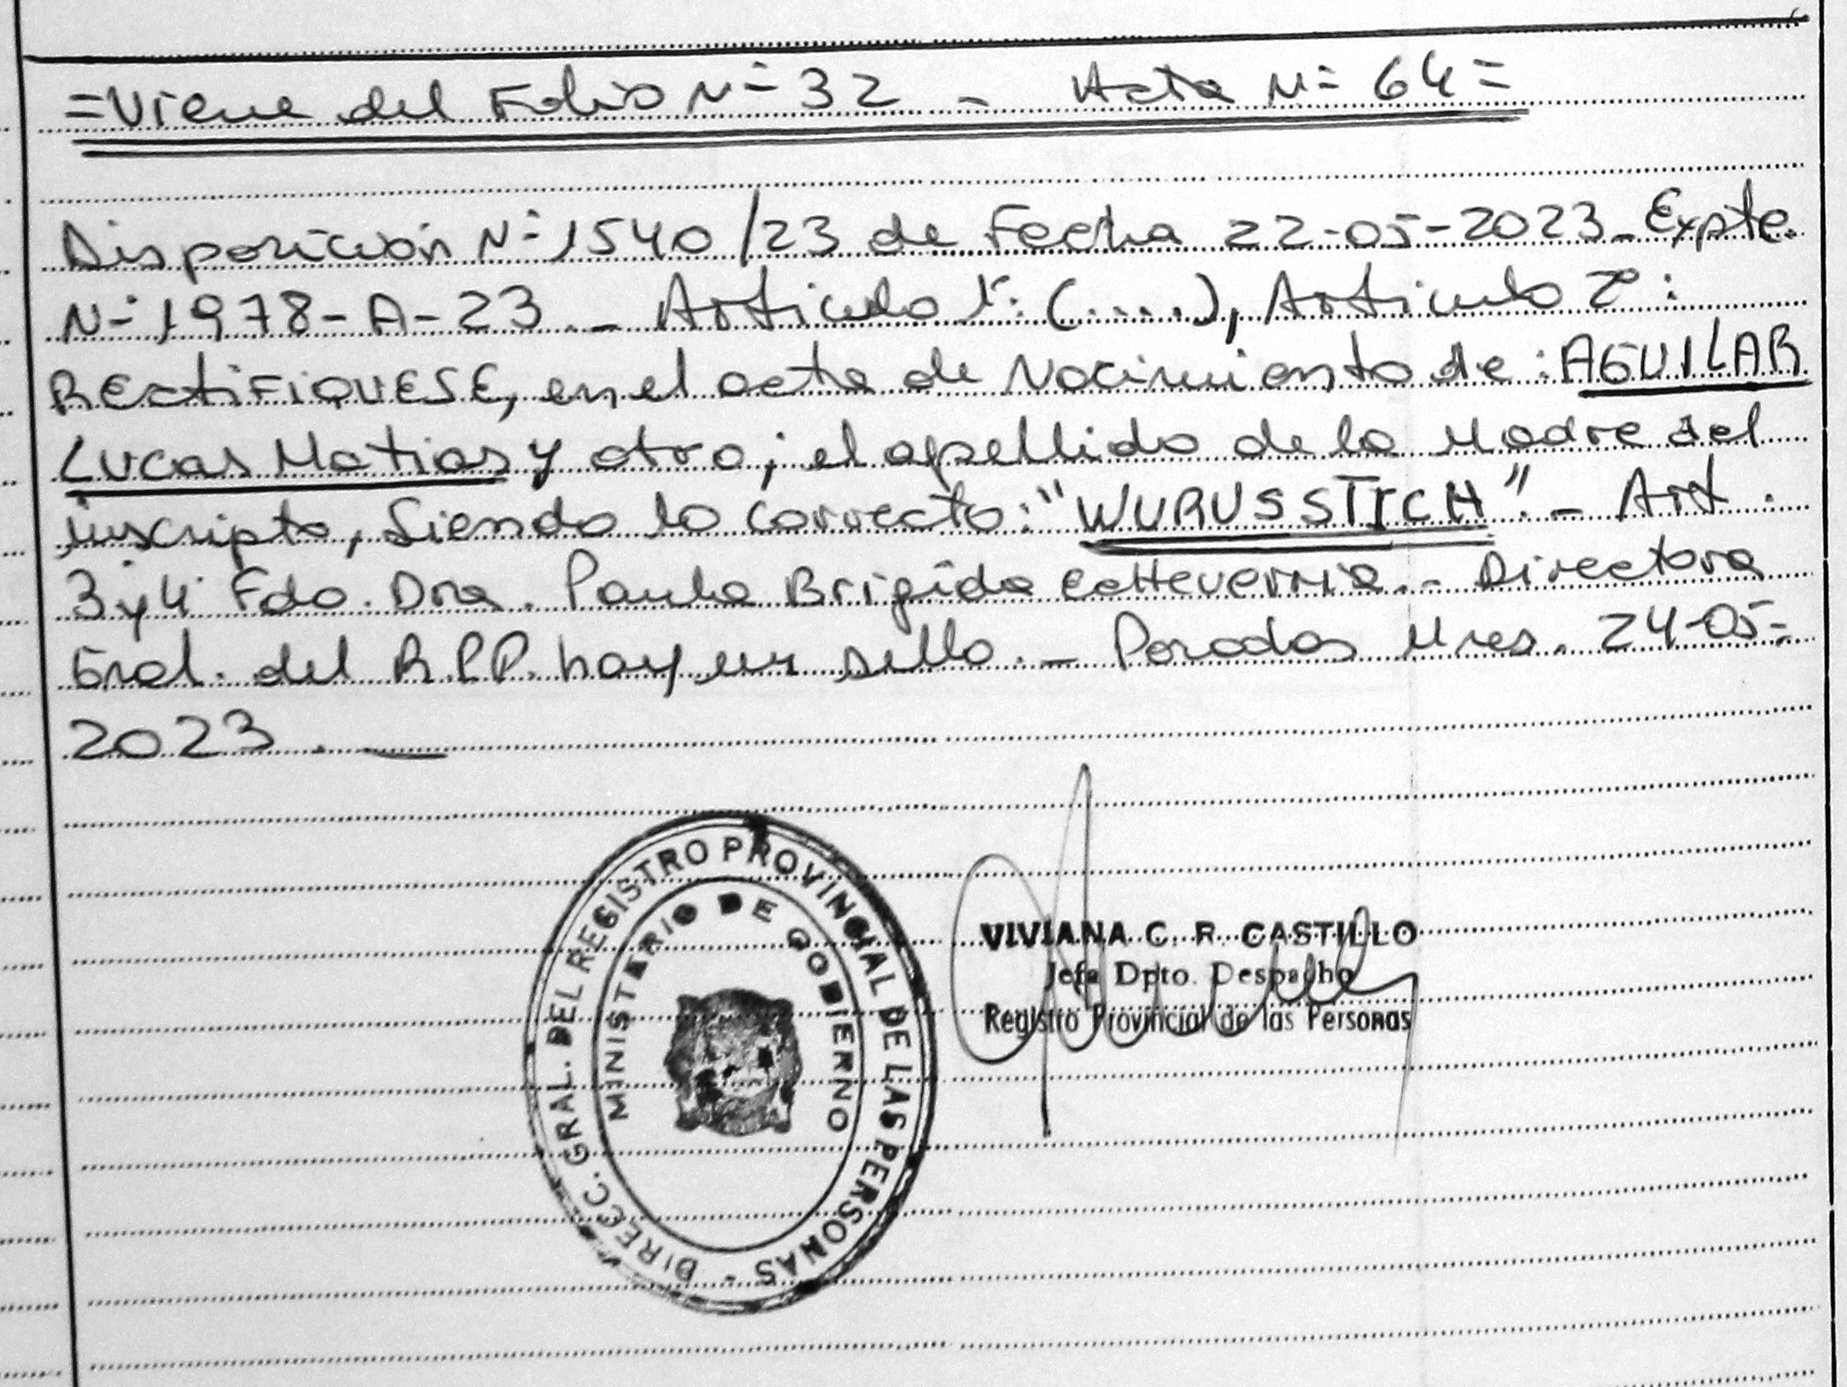 =Viene del Folio N=32 - Acta N= 64=
Disposición N=1540/23 de Fecha 22-05-2023_Expte.
N=1978-A-23._ Articulo 1º: (....), Articulo 2º:
RECtiFIQUESE, en el acta de Nacimiento de: AGUILAR
Lucas Matias y otro; el apellido de la Madre del
inscripto, Siendo lo correcto: "WURUSSTICH".- Art.
3 y 4 Fdo. Dra. Paula Brigida Echeverria.- Directora
Gral. del R.P.P. hay un sello._ Posadas Mnes. 24-05-
2023. __
DIRECC. GRAL. DEL REGISTRO PROVINCIAL DE LAS PERSONAS -
MINISTERIO DE GOBIERNO
VIVIANA C. R. CASTILLO
Jefa Dpto. Despacho
Registro Provincial de las Personas